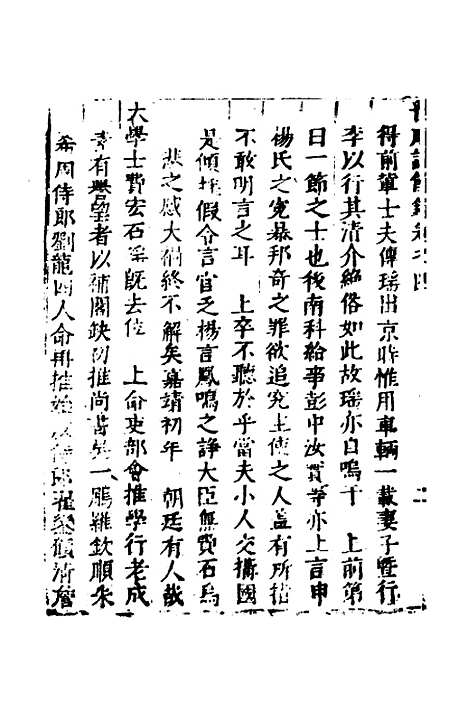 得前輩士夫傅瑶出京時惟用車輛一載妻子暨行
李以行其清介絶俗如此故瑶亦自鳴于　上前第
曰一節之士也後南科給事彭中汝寘等亦上言申
楊氏之寃暴邦奇之罪欲追究主使之人盖有所指
不敢明言之耳　上卒不聽於乎當夫小人交搆國
是傾　假令言官乏楊言鳳鳴之諍大臣無費石烏
　悲之感大獄終不解矣嘉靖初年　朝廷有人哉
大學士費宏石　既去位　上命吏部會推學行老成
　有　望者以補閣缺初推尚書吴一鵬羅欽順朱
希周侍郎劉龍四人命再推　　侍郎　鑾　　詹